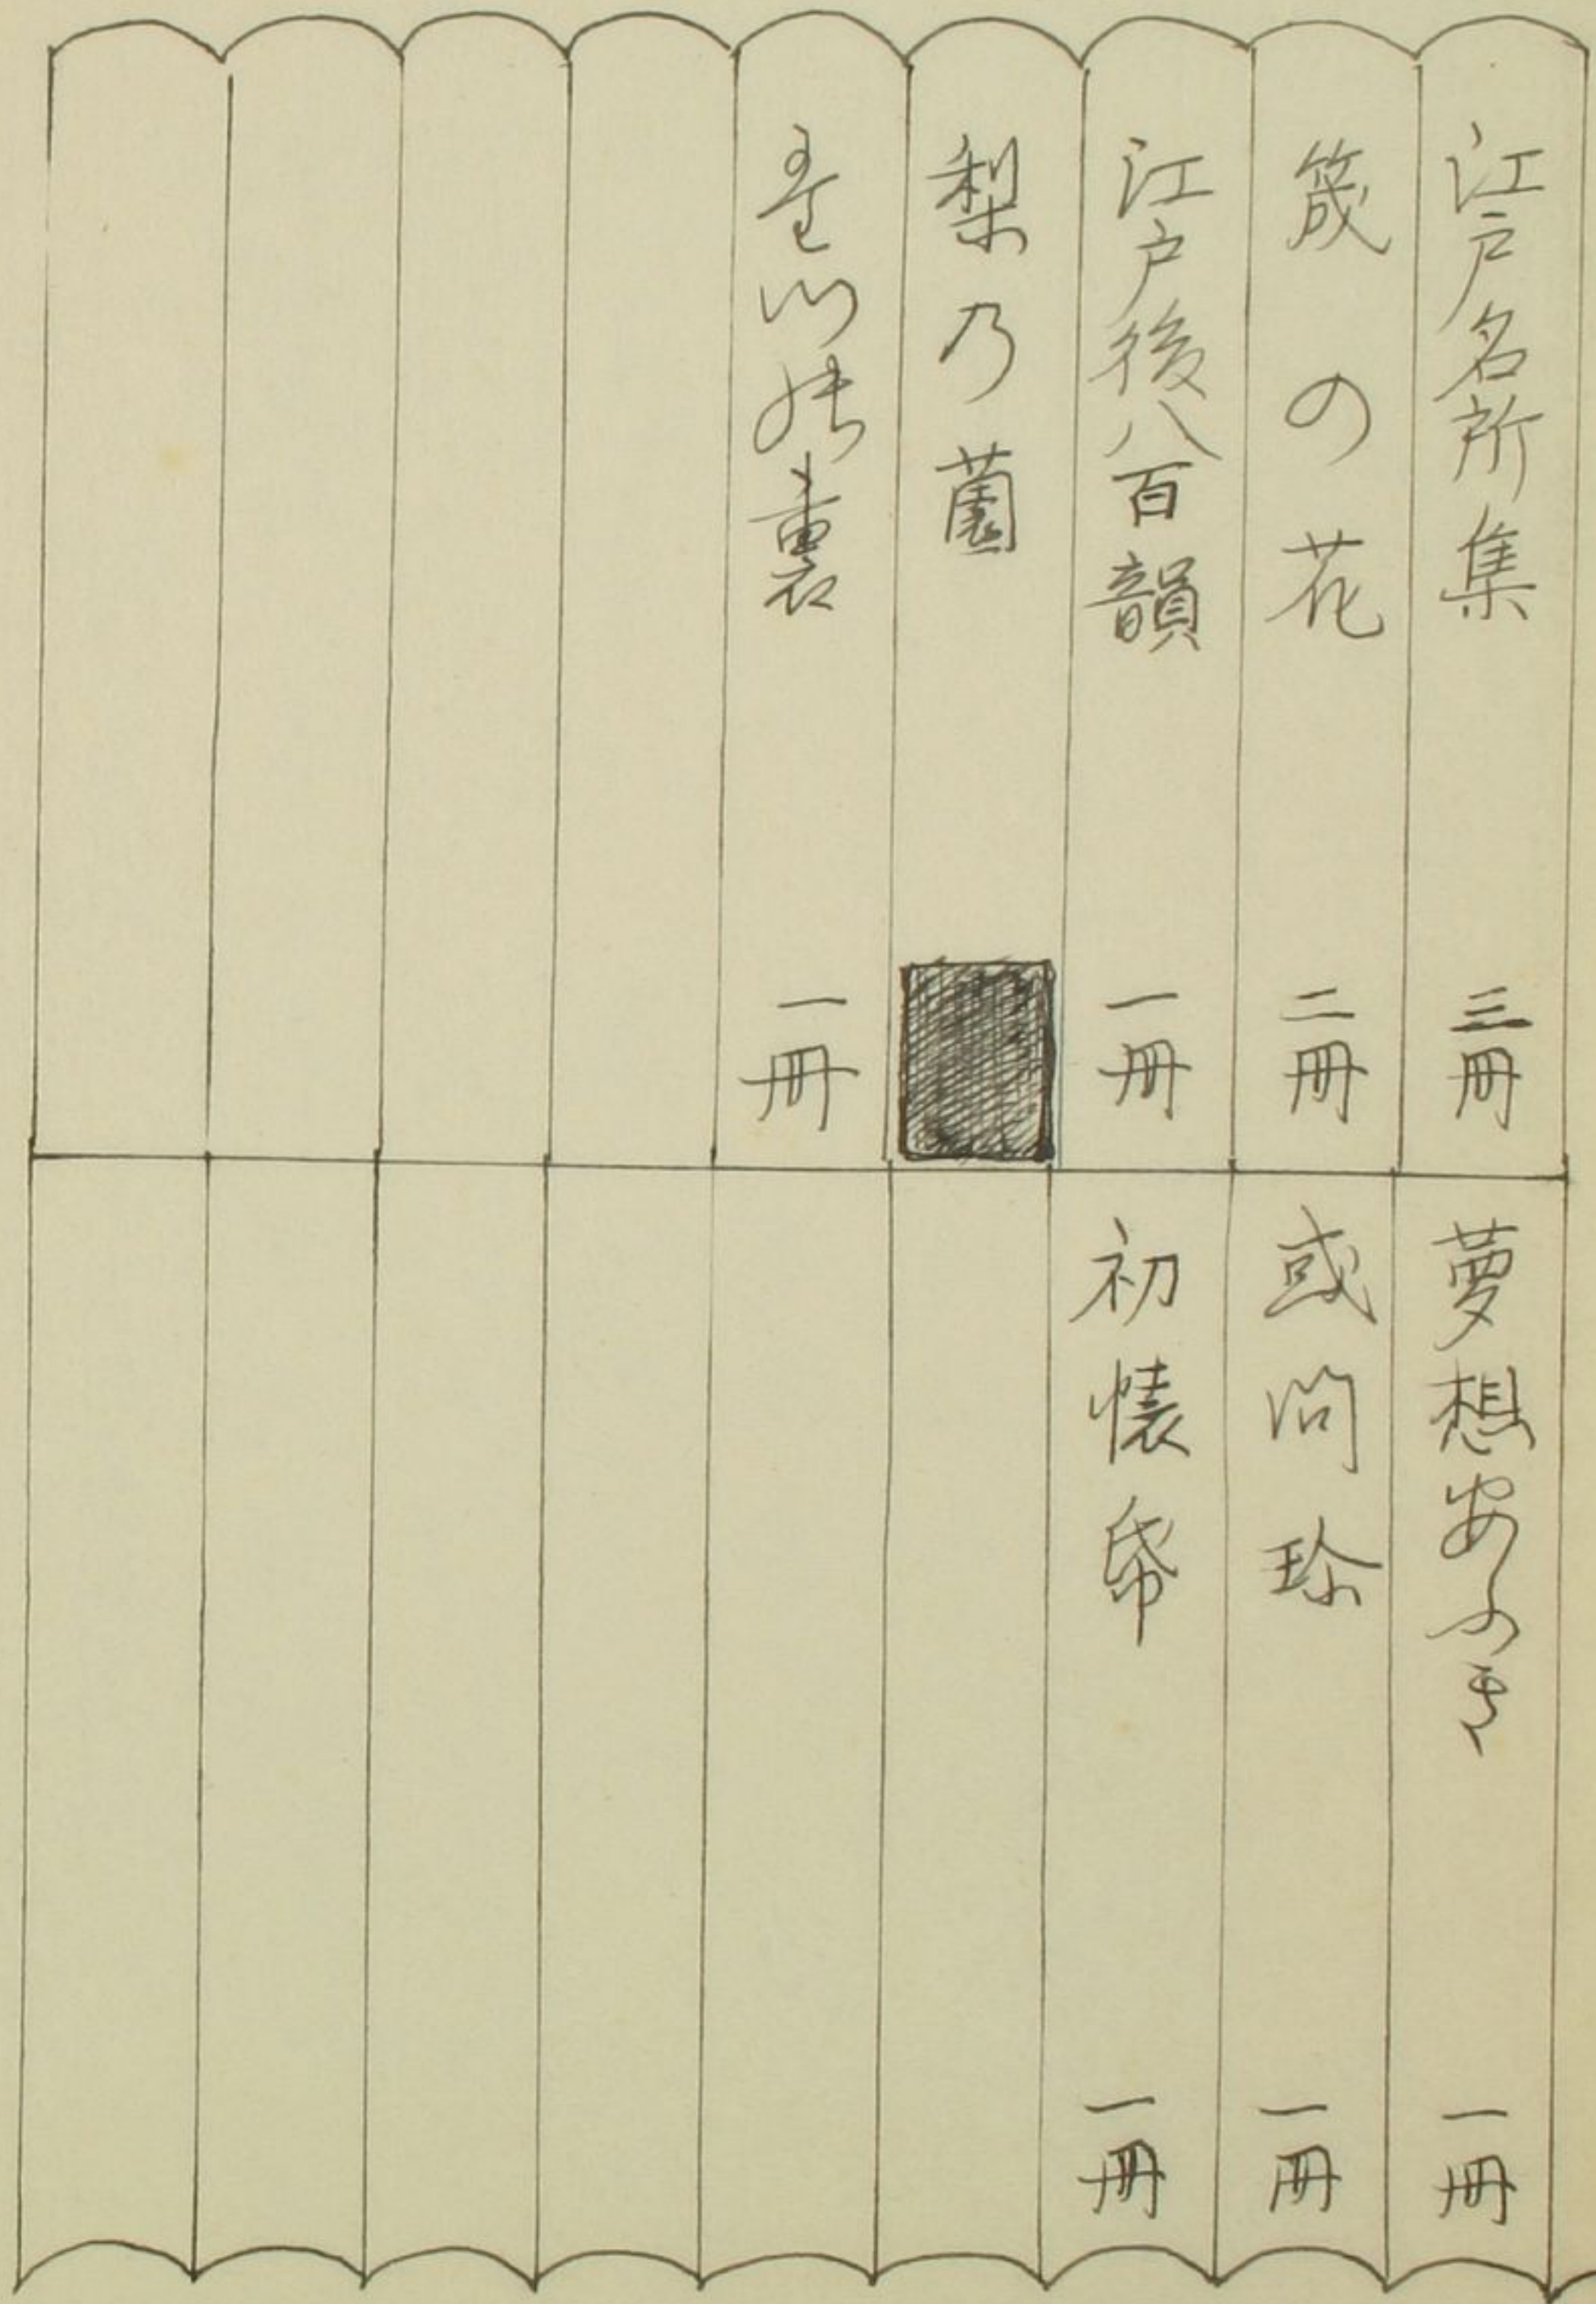 江戸名所集 三冊
筬の花 二冊
江戸後八百韻 一冊
梨乃薗
裏 一冊
夢想あふき 一冊
或問珍 一冊
初懐帋 一冊